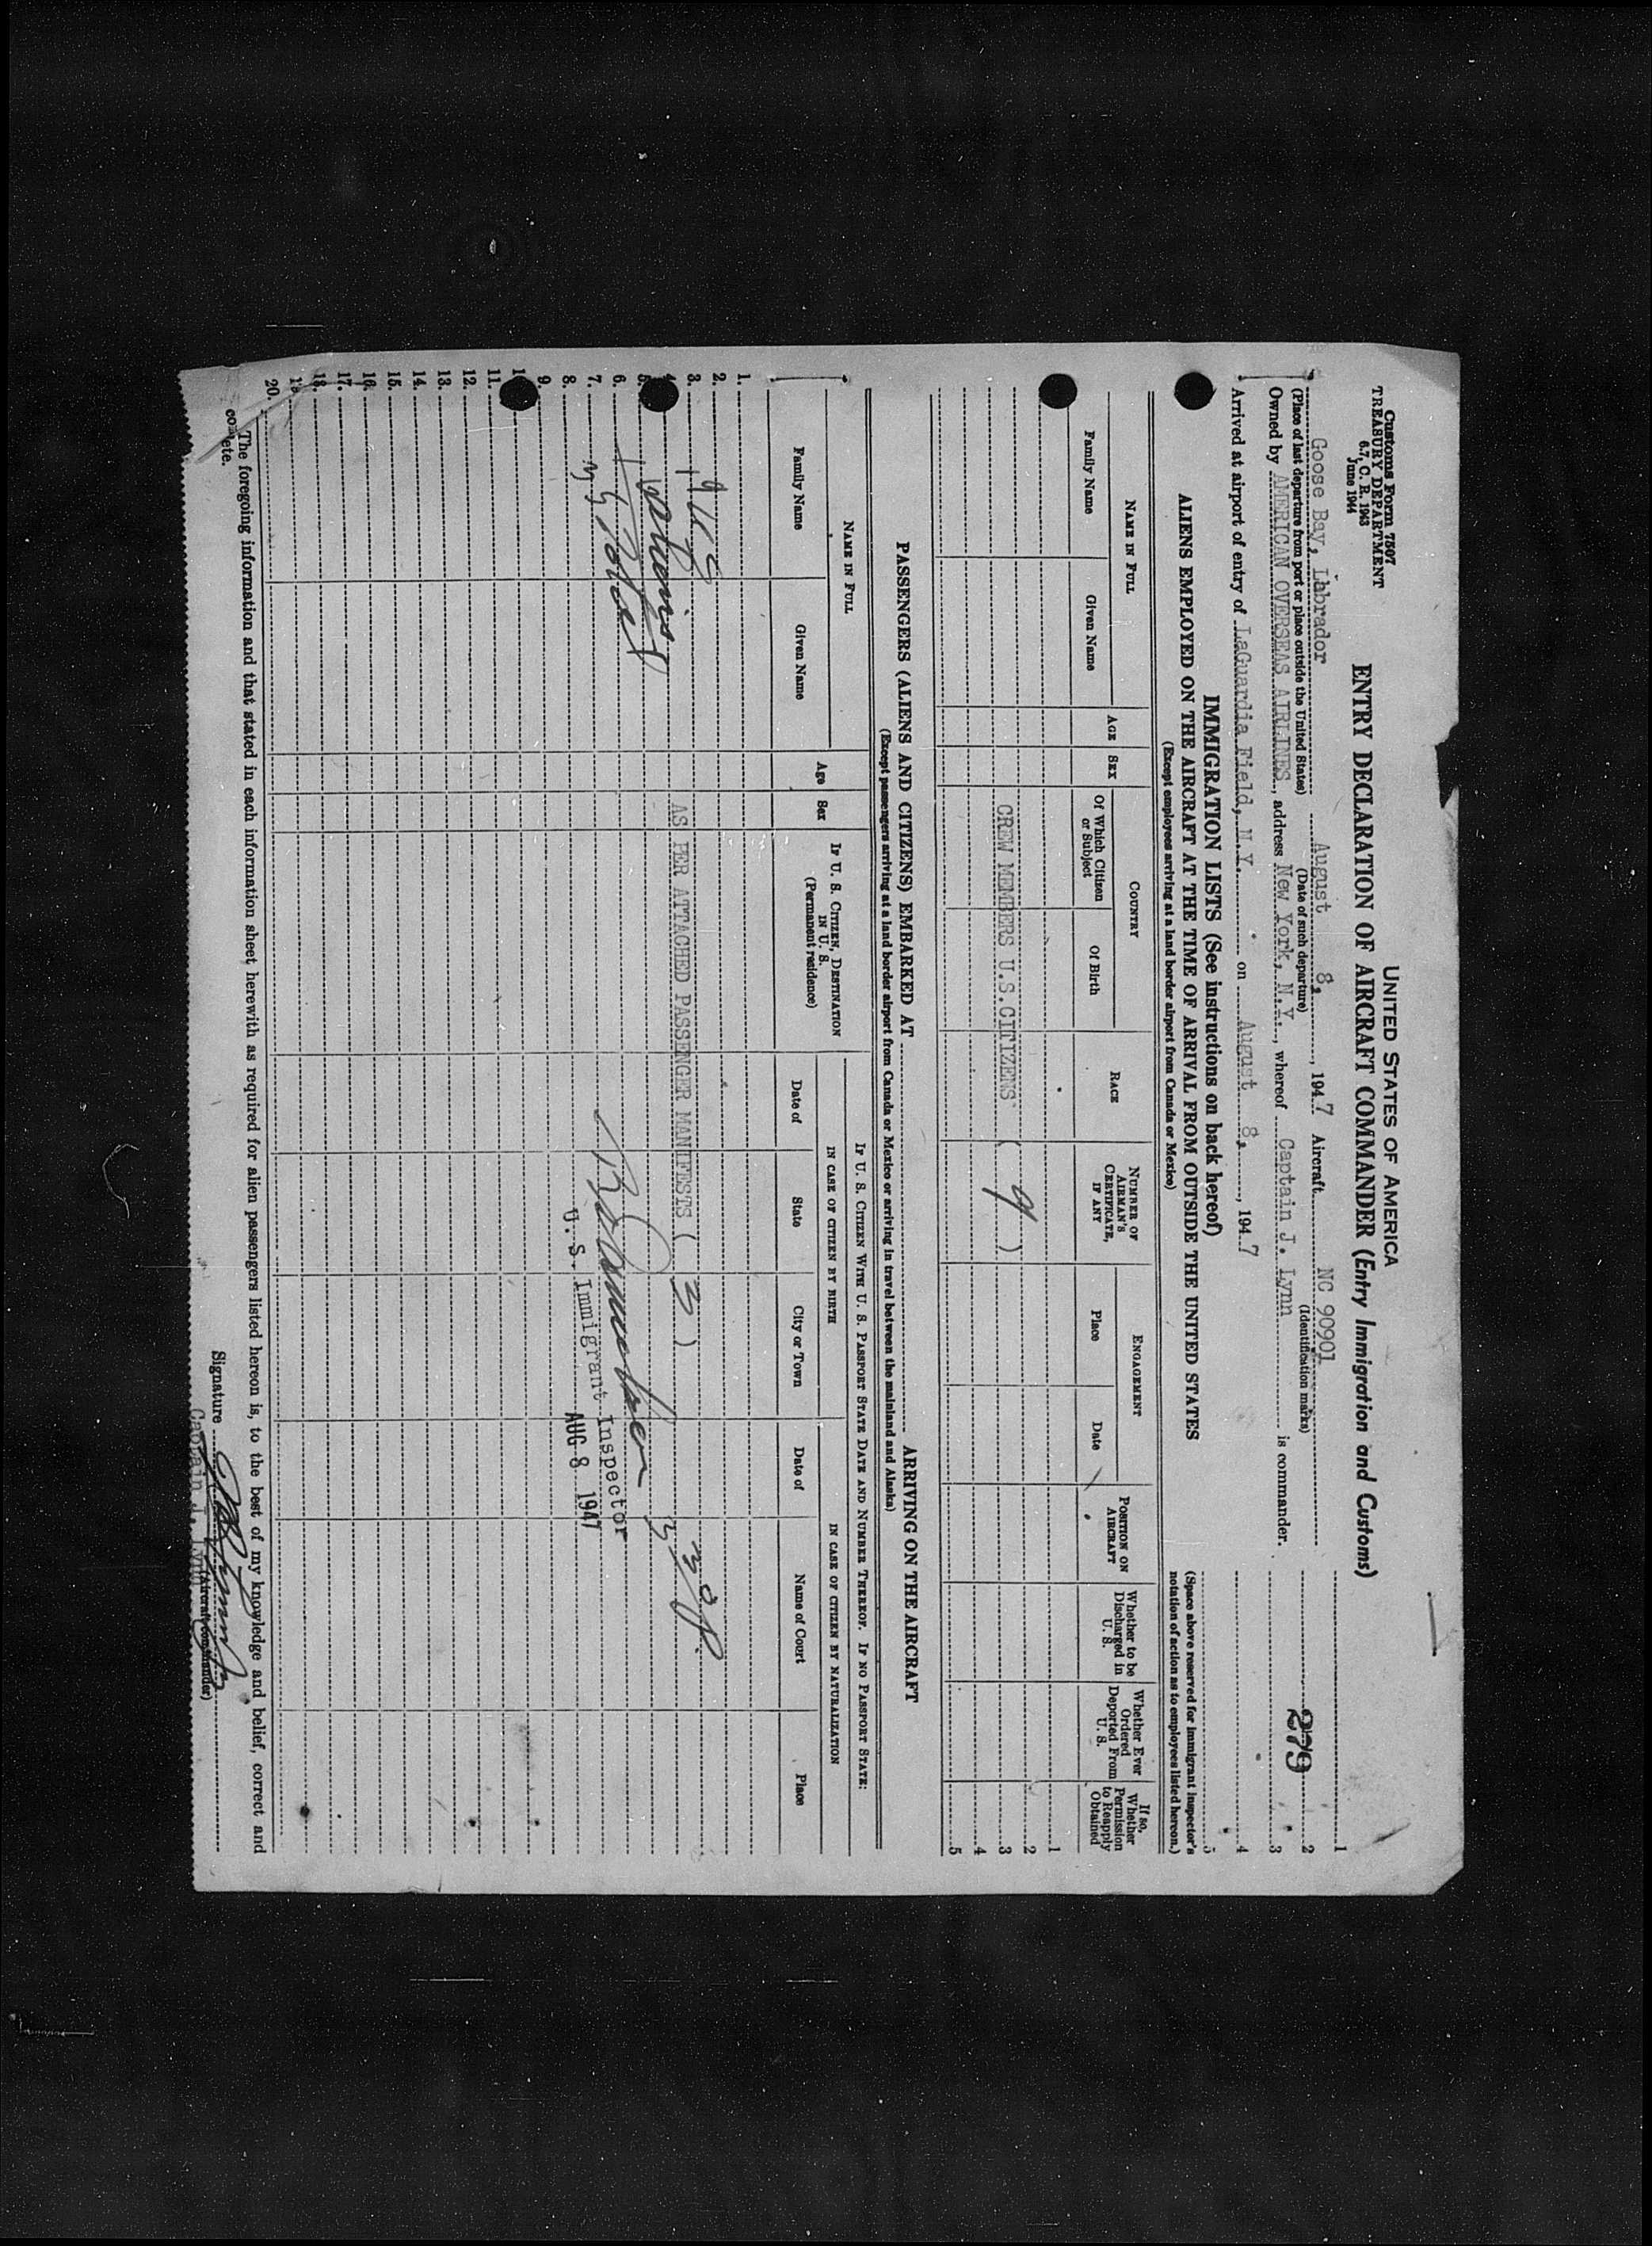 Customs Form 7507
TREASURY DEPARTMENT
6.7, C. R. 1943
June 1944
UNITED STATES OF AMERICA
ENTRY DECLARATION OF AIRCRAFT COMMANDER (Entry Immigration and Customs)
Goose Bay, Labrador August 8, 1947 Aircraft NC 90901
(Place of last departure from port or place outside the United States) (Date of such departure) (Identification marks)
Owned by AMERICAN OVERSEAS AIRLINES, address New York, N.Y., whereof Captain J. Lynn is commander.
Arrived at airport of entry of LaGuardia Field, N.Y. on August 8, 1947
1
2
279
3
4
5
(Space above reserved for immigrant inspector's notation of action as to employees listed hereon.)
IMMIGRATION LISTS (See instructions on back hereof)
ALIENS EMPLOYED ON THE AIRCRAFT AT THE TIME OF ARRIVAL FROM OUTSIDE THE UNITED STATES
(Except employees arriving at a land border airport from Canada or Mexico)
NAME IN FULL
Family Name
Given Name
AGE
SEX
COUNTRY
Of Which Citizen or Subject
Of Birth
RACE
NUMBER OF AIRMAN'S CERTIFICATE, IF ANY
ENGAGEMENT
Place
Date
POSITION ON AIRCRAFT
Whether to be Discharged in U. S.
Whether Ever Ordered Deported From U. S.
If so, Whether Permission to Reapply Obtained
1
2
CREW MEMBERS U.S.CITIZENS ( 9 ) 3
4
5
PASSENGERS (ALIENS AND CITIZENS) EMBARKED AT ARRIVING ON THE AIRCRAFT
(Except passengers arriving at a land border airport from Canada or Mexico or arriving in travel between the mainland and Alaska)
NAME IN FULL
Family Name
Given Name
Age
Sex
IF U. S. CITIZEN, DESTINATION IN U. S.
(Permanent residence)
IF U. S. CITIZEN WITH U. S. PASSPORT STATE DATE AND NUMBER THEREOF. IF NO PASSPORT STATE:
IN CASE OF CITIZEN BY BIRTH
Date of
State
City or Town
IN CASE OF CITIZEN BY NATURALIZATION
Date of
Name of Court
Place
1.
2.
3.
AS PER ATTACHED PASSENGER MANIFESTS ( 3 )
5.
6.
7.
U. S. Immigrant Inspector
8.
AUG 8 1947
9.
11.
12.
13.
14.
15.
16.
17.
18.
20.
The foregoing information and that stated in each information sheet herewith as required for alien passengers listed hereon is, to the best of my knowledge and belief, correct and complete.
Signature
(Aircraft commander)
Captain J. Lynn